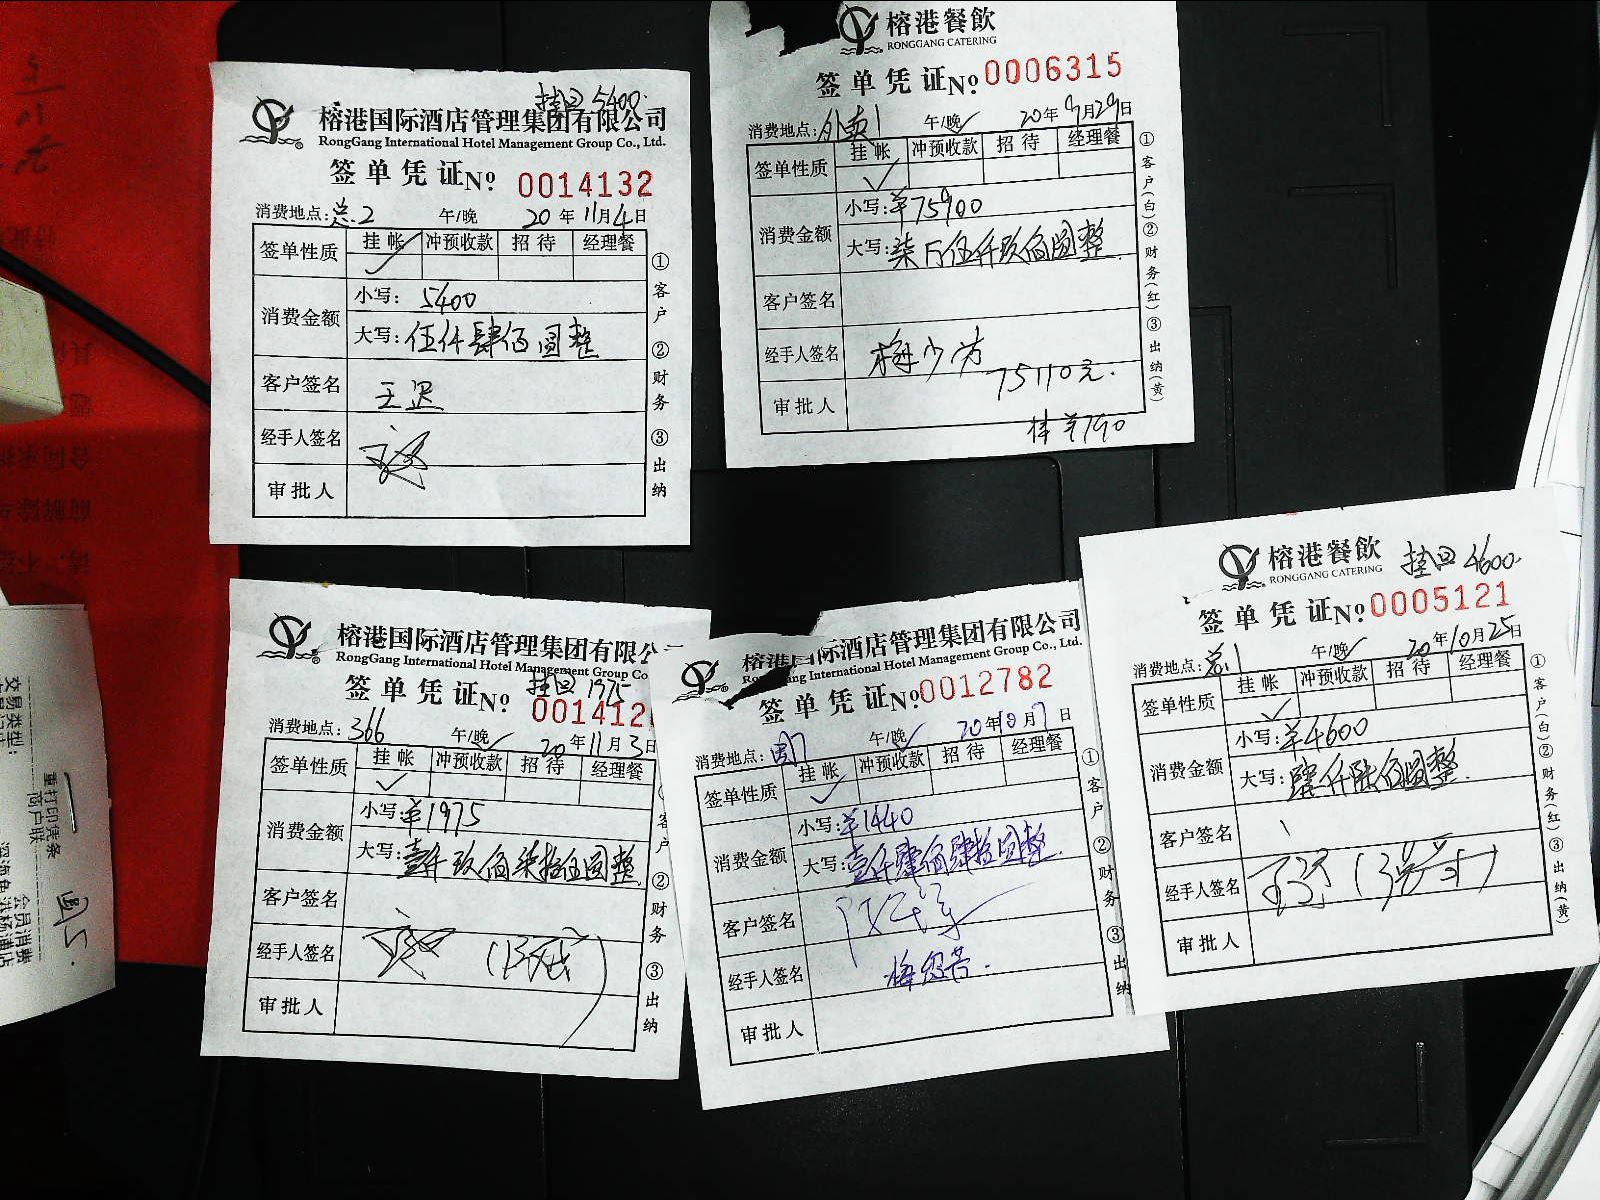 挂回5400.
榕港国际酒店管理集团有限公司
RongGang International Hotel Management Group Co., Ltd.
签单凭证№ 0014132
消费地点:总.2 午/晚 20年11月4日
签单性质 挂帐 冲预收款 招待 经理餐
消费金额
小写: 5400
大写:伍仟肆佰圆整
客户签名
经手人签名
审批人
①客户 ②财务 ③出纳
榕港餐飲
RONGGANG CATERING
签单凭证№0006315
消费地点:外卖1 午/晚 20年9月29日
签单性质 挂帐 冲预收款 招待 经理餐
消费金额
小写:¥75900
大写:柒万伍仟玖佰圆整
客户签名
经手人签名
75110元.
审批人
¥790
①客户(白)②财务(红)③出纳(黄)
榕港国际酒店管理集团有限公
RongGang International Hotel Management Group Co
挂回1975
签单凭证№ 001412
消费地点:366 午/晚 20年11月3日
签单性质 挂帐 冲预收款 招待 经理餐
消费金额
小写:¥1975
大写:壹仟玖佰柒拾伍圆整
客户签名
经手人签名
审批人
客户 ②财务 ③出纳
榕港国际酒店管理集团有限公司
RongGang International Hotel Management Group Co., Ltd.
签单凭证№0012782
消费地点: 午/晚 20年10月7日
签单性质 挂帐 冲预收款 招待 经理餐
消费金额
小写:¥1440
大写:壹仟肆佰肆拾圆整
客户签名
经手人签名
审批人
①客户 ②财务 ③出纳
榕港餐飲
RONGGANG CATERING
挂回4600.
签单凭证№0005121
消费地点:总1 午/晚 20年10月25日
签单性质 挂帐 冲预收款 招待 经理餐
消费金额
小写:¥4600
大写:肆仟陆佰圆整
客户签名
经手人签名
审批人
①客户(白)②财务(红)③出纳(黄)
重打印凭条
商户联
交易类型:
会员消费